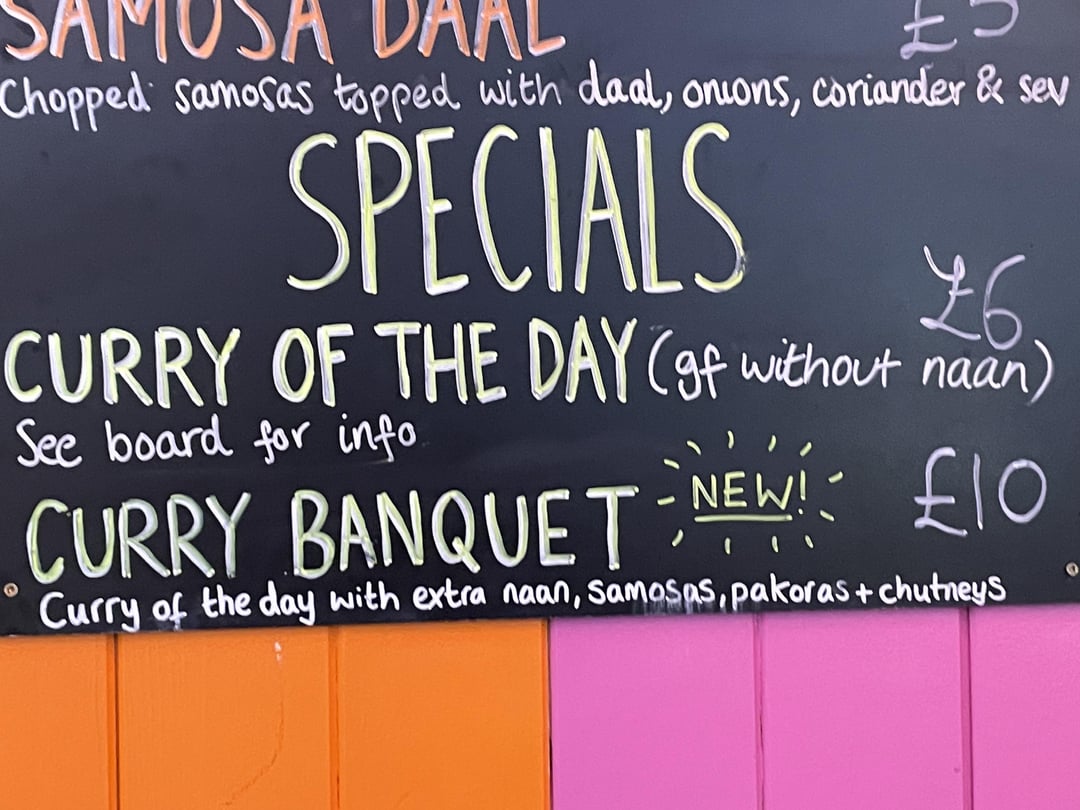 SAMOSA DAAL £5
Chopped samosas topped with daal, onions, coriander & sev
SPECIALS
£6
CURRY OF THE DAY (gf without naan)
See board for info
CURRY BANQUET NEW! £10
Curry of the day with extra naan, samosas, pakoras + chutneys